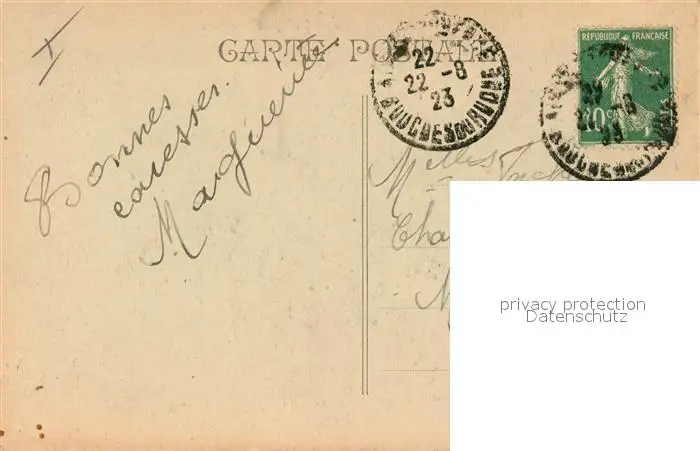 I
CARTE POSTALE
Bonnes
caresses.
Marguerite
22
22 -8
23
BOUCHES DU RHONE
REPUBLIQUE FRANÇAISE
10c
Melles
Cha
privacy protection
Datenschutz